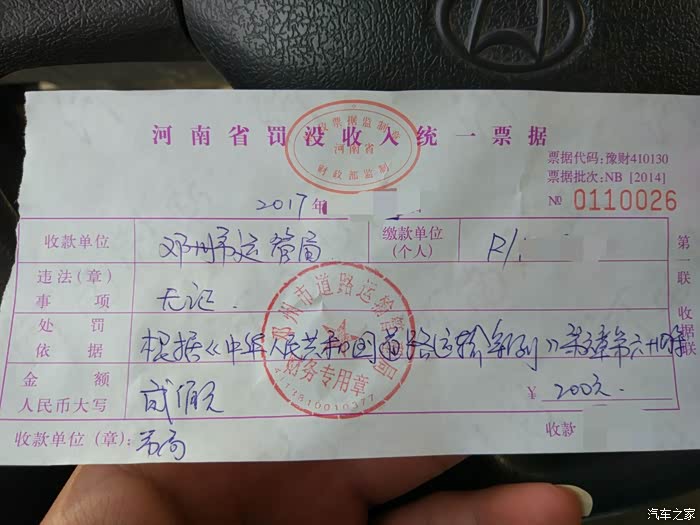 河南省罚没收入统一票据
罚没票据监制章
河南省
财政部监制
票据代码:豫财410130
票据批次:NB [2014]
№ 0110026
2017年
收款单位 邓州市运管局 缴款单位(个人)
违法(章)事项 无证.
处罚依据 根据《中华人民共和国道路运输条例》第 章第六十
金额人民币大写 贰佰元 ¥ 200元.
收款单位(章):
收款
第一联 收据联
邓州市道路运输管理局
财务专用章
4113810010377
汽车之家